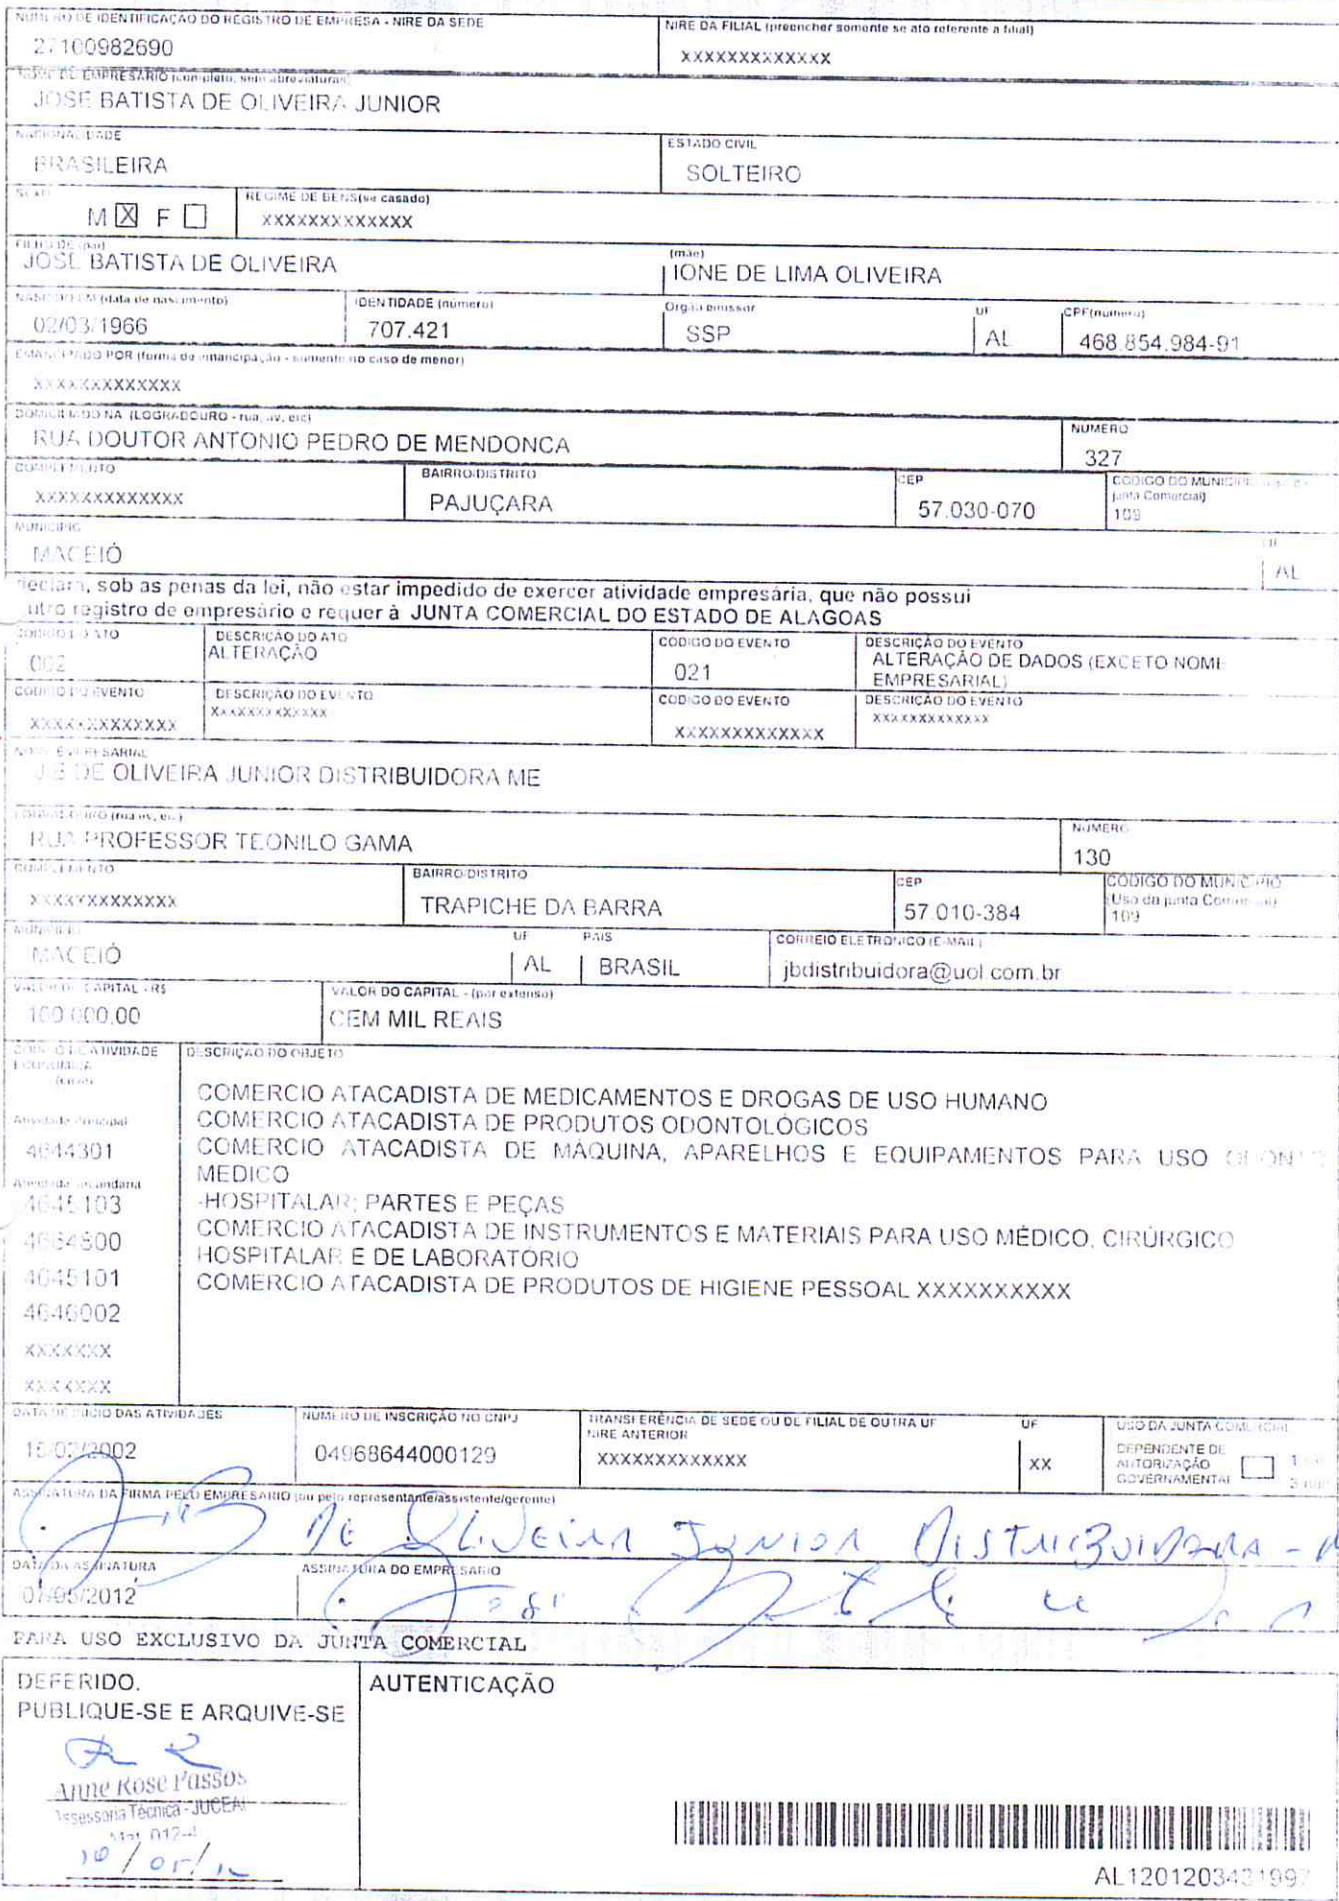 NÚMERO DE IDENTIFICAÇÃO DO REGISTRO DE EMPRESA - NIRE DA SEDE
27100982690
NIRE DA FILIAL (preencher somente se ato referente a filial)
XXXXXXXXXXXXX
NOME DO EMPRESÁRIO (completo, sem abreviaturas)
JOSE BATISTA DE OLIVEIRA JUNIOR
NACIONALIDADE
BRASILEIRA
ESTADO CIVIL
SOLTEIRO
SEXO
M X F
REGIME DE BENS(se casado)
XXXXXXXXXXXXX
FILHO DE (pai)
JOSE BATISTA DE OLIVEIRA
(mãe)
IONE DE LIMA OLIVEIRA
NASCIDO EM (data de nascimento)
02/03/1966
IDENTIDADE (número)
707.421
Orgão emissor
SSP
UF
AL
CPF(número)
468.854.984-91
EMANCIPADO POR (forma de emancipação - somente no caso de menor)
XXXXXXXXXXXXX
DOMICILIADO NA (LOGRADOURO - rua, av, etc)
RUA DOUTOR ANTONIO PEDRO DE MENDONCA
NUMERO
327
COMPLEMENTO
XXXXXXXXXXXXX
BAIRRO/DISTRITO
PAJUÇARA
CEP
57.030-070
CODIGO DO MUNICIPIO
junta Comercial)
109
MUNICIPIO
MACEIÓ
UF
AL
declara, sob as penas da lei, não estar impedido de exercer atividade empresária, que não possui
outro registro de empresário e requer à JUNTA COMERCIAL DO ESTADO DE ALAGOAS
CODIGO DO ATO
002
DESCRIÇÃO DO ATO
ALTERAÇÃO
CODIGO DO EVENTO
021
DESCRIÇÃO DO EVENTO
ALTERAÇÃO DE DADOS (EXCETO NOME
EMPRESARIAL)
CODIGO DO EVENTO
XXXXXXXXXXXXX
DESCRIÇÃO DO EVENTO
XXXXXXXXXXXXX
CODIGO DO EVENTO
XXXXXXXXXXXXX
DESCRIÇÃO DO EVENTO
XXXXXXXXXXXXX
NOME EMPRESARIAL
J B DE OLIVEIRA JUNIOR DISTRIBUIDORA ME
LOGRADOURO (rua av, etc)
RUA PROFESSOR TEONILO GAMA
NUMERO
130
COMPLEMENTO
XXXXXXXXXXXXX
BAIRRO/DISTRITO
TRAPICHE DA BARRA
CEP
57.010-384
CODIGO DO MUNICIPIO
(Uso da junta Comercial)
109
MUNICIPIO
MACEIÓ
UF
AL
PAIS
BRASIL
CORREIO ELETRONICO (E-MAIL)
jbdistribuidora@uol.com.br
VALOR DO CAPITAL - R$
100.000,00
VALOR DO CAPITAL - (por extenso)
CEM MIL REAIS
CODIGO DE ATIVIDADE
ECONOMICA
DESCRIÇÃO DO OBJETO
Atividade Principal
4644301
Atividade secundaria
4645103
4664800
4645101
4646002
XXXXXXX
XXXXXXX
COMERCIO ATACADISTA DE MEDICAMENTOS E DROGAS DE USO HUMANO
COMERCIO ATACADISTA DE PRODUTOS ODONTOLÓGICOS
COMERCIO ATACADISTA DE MÁQUINA, APARELHOS E EQUIPAMENTOS PARA USO ODONTO
MEDICO
-HOSPITALAR; PARTES E PEÇAS
COMERCIO ATACADISTA DE INSTRUMENTOS E MATERIAIS PARA USO MÉDICO, CIRÚRGICO
HOSPITALAR E DE LABORATÓRIO
COMERCIO ATACADISTA DE PRODUTOS DE HIGIENE PESSOAL XXXXXXXXXX
DATA DE INICIO DAS ATIVIDADES
15/02/2002
NUMERO DE INSCRIÇÃO NO CNPJ
04968644000129
TRANSFERÊNCIA DE SEDE OU DE FILIAL DE OUTRA UF
NIRE ANTERIOR
XXXXXXXXXXXXX
UF
XX
USO DA JUNTA COMERCIAL
DEPENDENTE DE
AUTORIZAÇÃO
GOVERNAMENTAL
ASSINATURA DA FIRMA PELO EMPRESARIO (ou pelo representante/assistente/gerente)
JB DE OLIVEIRA JUNIOR DISTRIBUIDORA - M
DATA DA ASSINATURA
07/05/2012
ASSINATURA DO EMPRESARIO
PARA USO EXCLUSIVO DA JUNTA COMERCIAL
DEFERIDO.
PUBLIQUE-SE E ARQUIVE-SE
Anne Rose Passos
Assessoria Técnica - JUCEAL
Mat. 012-4
10/05/12
AUTENTICAÇÃO